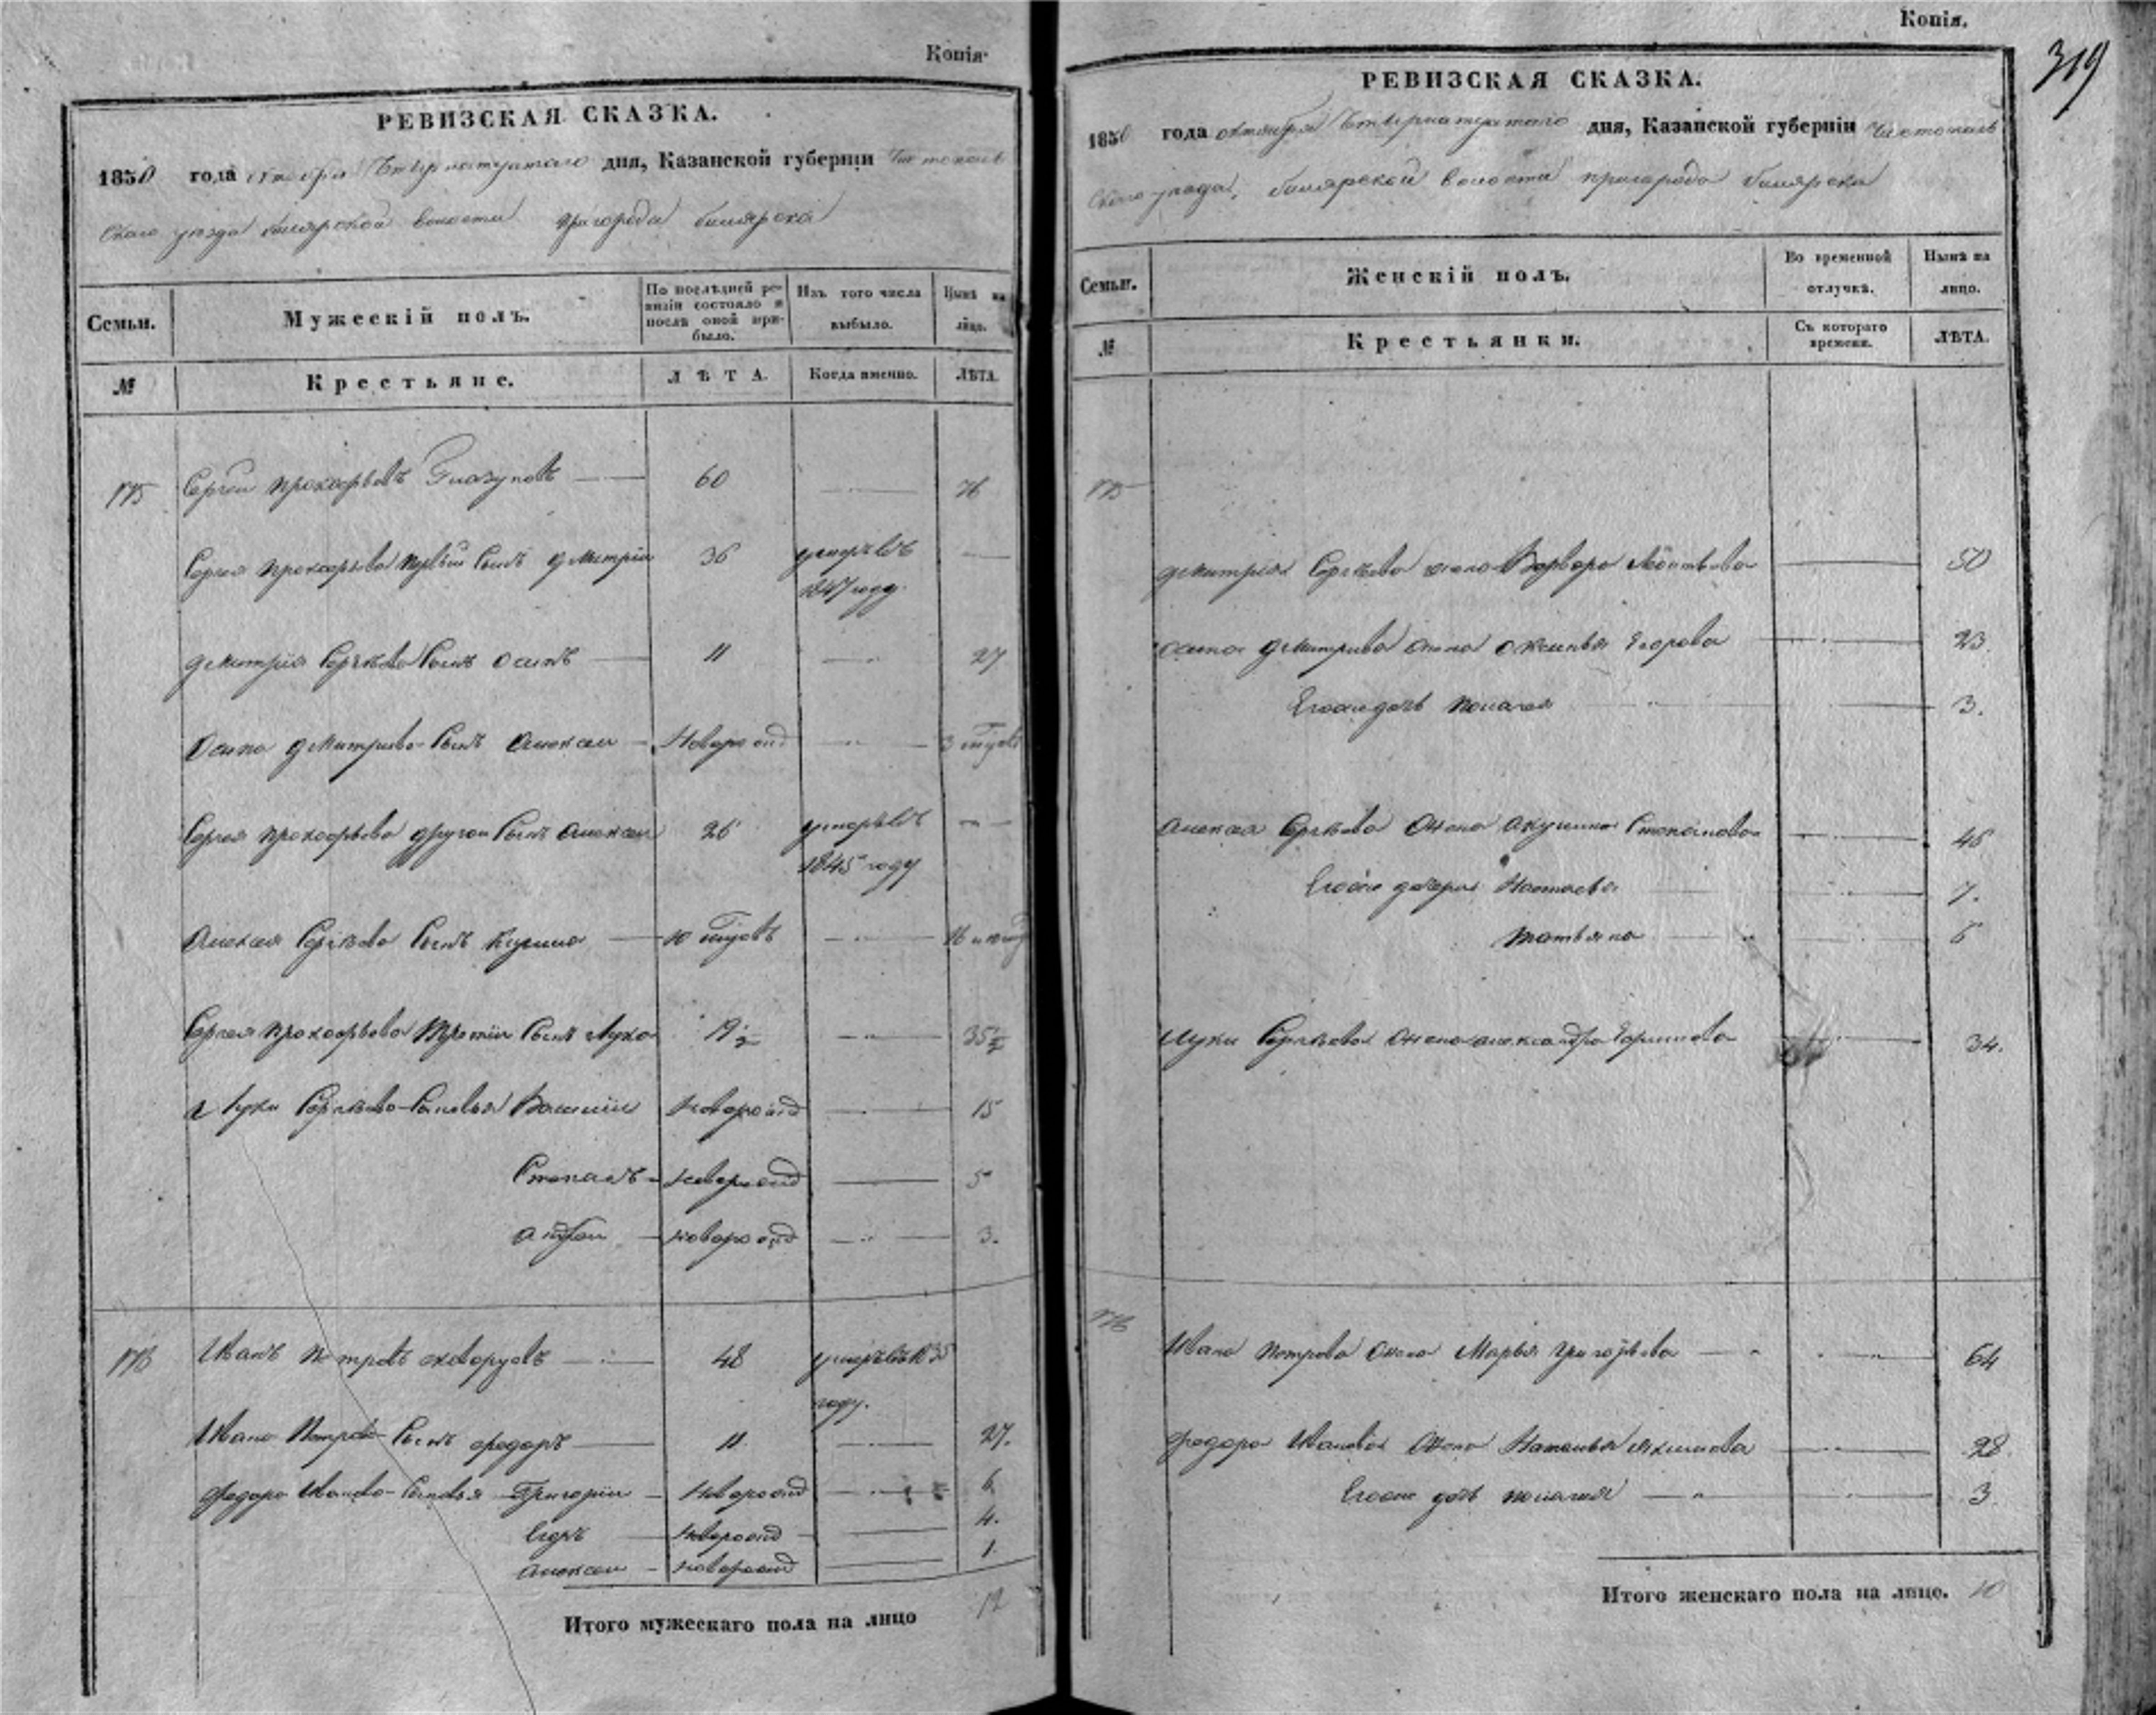 Копія.
РЕВИЗСКАЯ СКАЗКА.
1850 года октября Четырнатцатаго дня, Казанской губерніи Чистополь
скаго уезда билярской волости пригорода билярска
Семьи.
Мужескій полъ.
По послѣдней ре-
визіи состояло и
послѣ оной при-
было.
Изъ того числа
выбыло.
Нынѣ на
лицо.
№
Крестьяне.
ЛѢТА.
Когда именно.
ЛѢТА.
175 Сергей прокофьевъ Глазуновъ 60 76
Сергея прокофьева первый сынъ дмитрий 36 умеръ въ
1847 году.
дмитрия Сергеева Сынъ осипъ 11 27
Осипа дмитриева Сынъ алексеи Новорожд 3 
Сергея прокофьева другои Сынъ алексеи 26 умеръ въ
1845 году
алексея Сергеева Сынъ Кузьма 10
Сергея прокофьева третии Сынъ Лука 19½ 35½
Луки Сергеева Сыновья Василии новорожд 15
Степанъ новорожд 5
новорожд 3.
176 Иванъ петровъ 48 умеръ въ
году.
Ивана Петрова Сынъ федоръ 11 27.
федора Иванова Сыновья Григории новорожд 6
Егоръ новорожд 4.
алексеи новорожд 1
Итого мужескаго пола на лицо 12
Копія.
319
РЕВИЗСКАЯ СКАЗКА.
1850 года октября Четырнатцатаго дня, Казанской губерніи Чистополь
скаго уезда, билярской волости пригорода билярска
Семьи.
Женскій полъ.
Во временной
отлучкѣ.
Нынѣ на
лицо.
№
Крестьянки.
Съ котораго
времени.
ЛѢТА.
175
дмитрия Сергеева жена Варвара 50
осипа дмитриева жена оксинья Егорова 23.
Егоже дочь пелагея 3.
алексея Сергеева жена акулина Степанова 46
Егоже дочери Настасья 7.
татьяна 6
Луки Сергеева жена александра 34.
176 Ивана петрова жена Марья григорьева 64
федора Иванова жена Наталья 28.
Егоже дочь пелагея 3.
Итого женскаго пола на лицо. 10